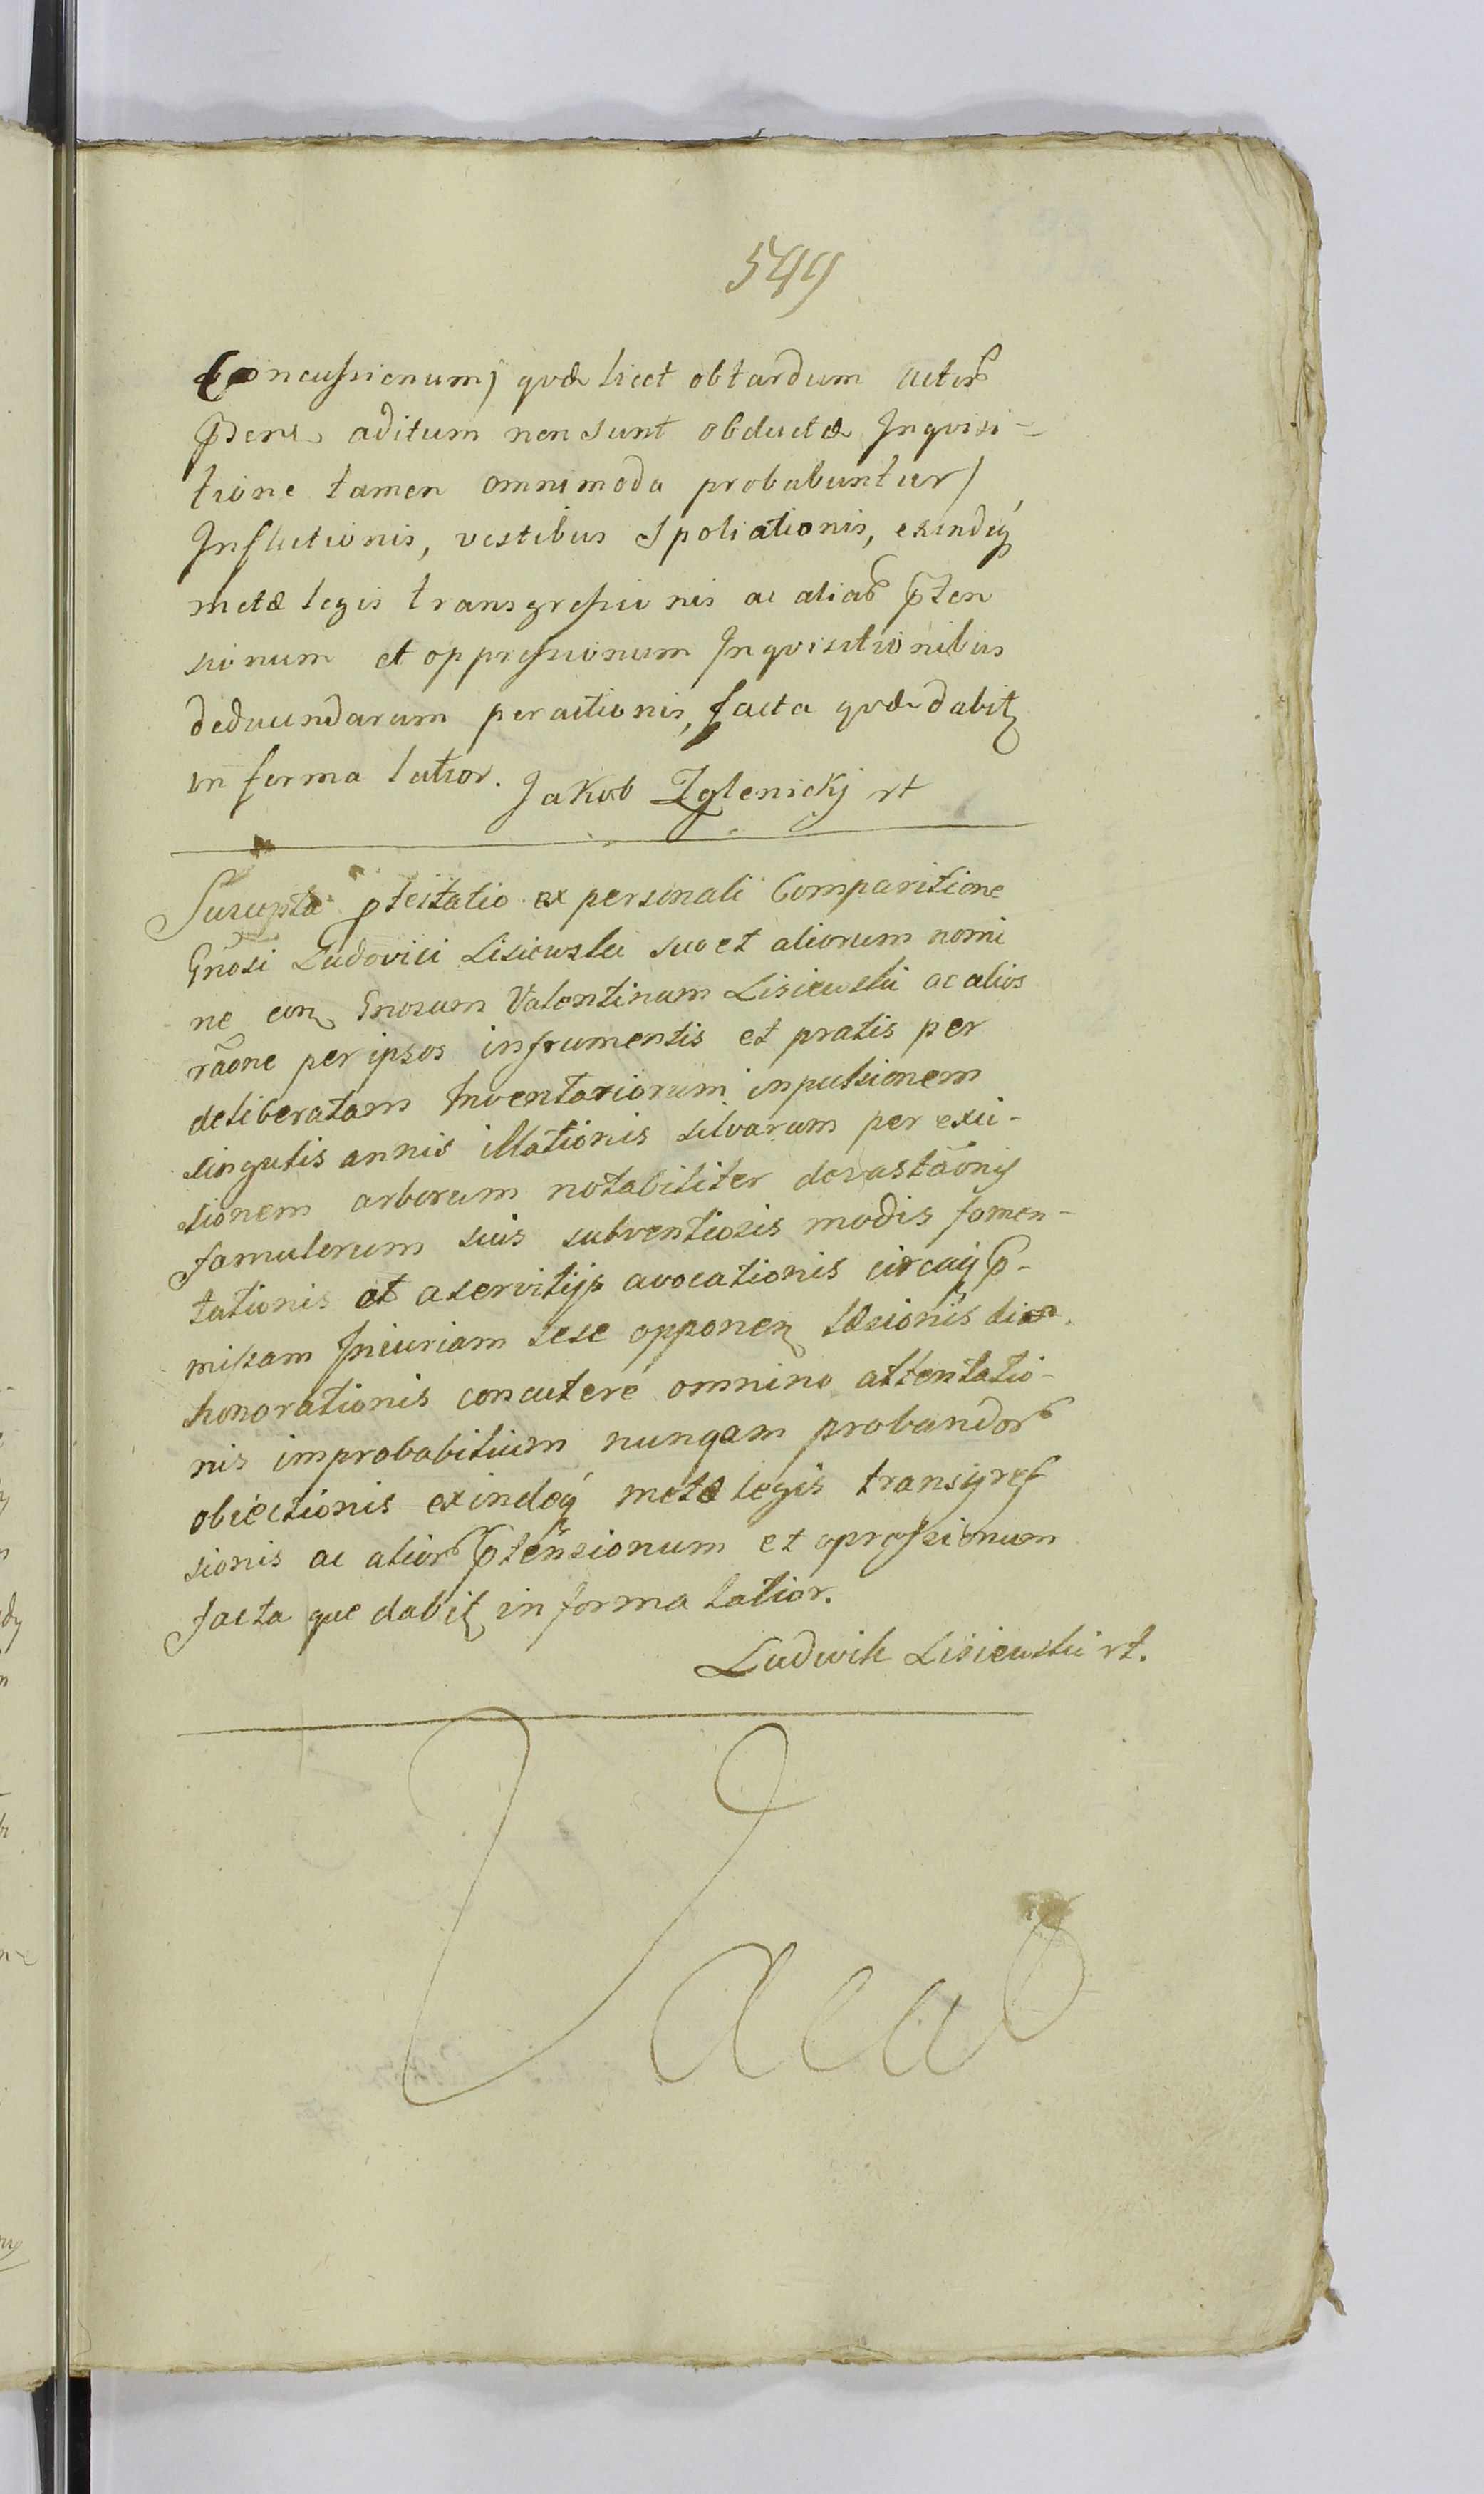 549
Concussionum) qvæ licet obtardum actor
Pdens aditum non sunt obductæ Inqvisi-
tione tamen omnimoda probabuntur)
Inflictionis, vestibus Spoliationis, exindeq
metæ legis transgressionis ac aliar pten
sionum et oppressionum Inqvisitionibus
deducendarum peractionis, facta qvæ dabit
in forma latior. Jakob Zglenickj rt
Suscepta ptestatio ex personali Comparitione
Gnosi Ludovici Lisiewski suo et aliorum nomi
ne con Gnosum Valentinum Lisiewski ac alios
raone per ipsos in frumentis et pratis per
deliberatam Inventariorum inpulsionem
singulis annis illationis silvarum per exci-
sionem arborum notabiliter devastaonis
famulorum suis subventiosis modis fomen-
tationis et a servitijs avocationis circaq p-
missam Iniuriam sese opponen læsionis
honorationis concutere omnino attentatio-
nis improbabilium nunqam probandor
obiectionis exindeq metæ legis transgres
sionis ac alior ptensionum et opressionum
facta que dabit in forma latior.
Ludwik Lisiewski rt.
Vacat